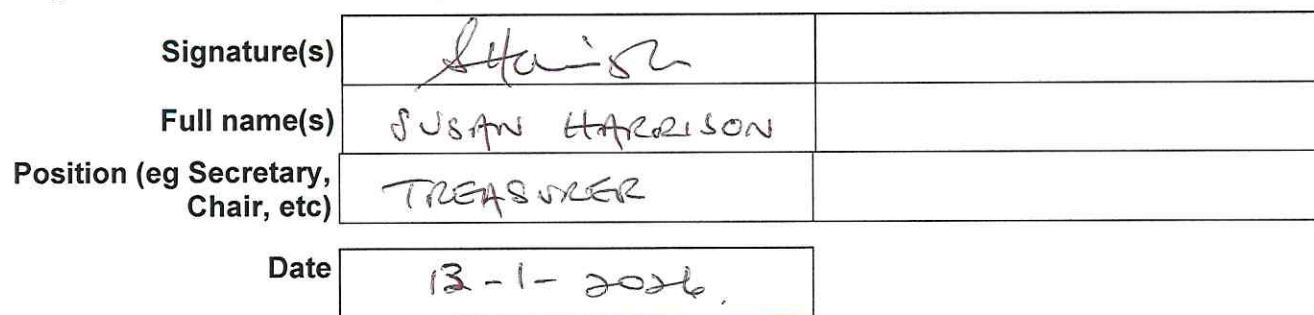 Signature(s) SHarrison
Full name(s) SUSAN HARRISON
Position (eg Secretary, TREASURER
Chair, etc)
Date 13-1-2026.